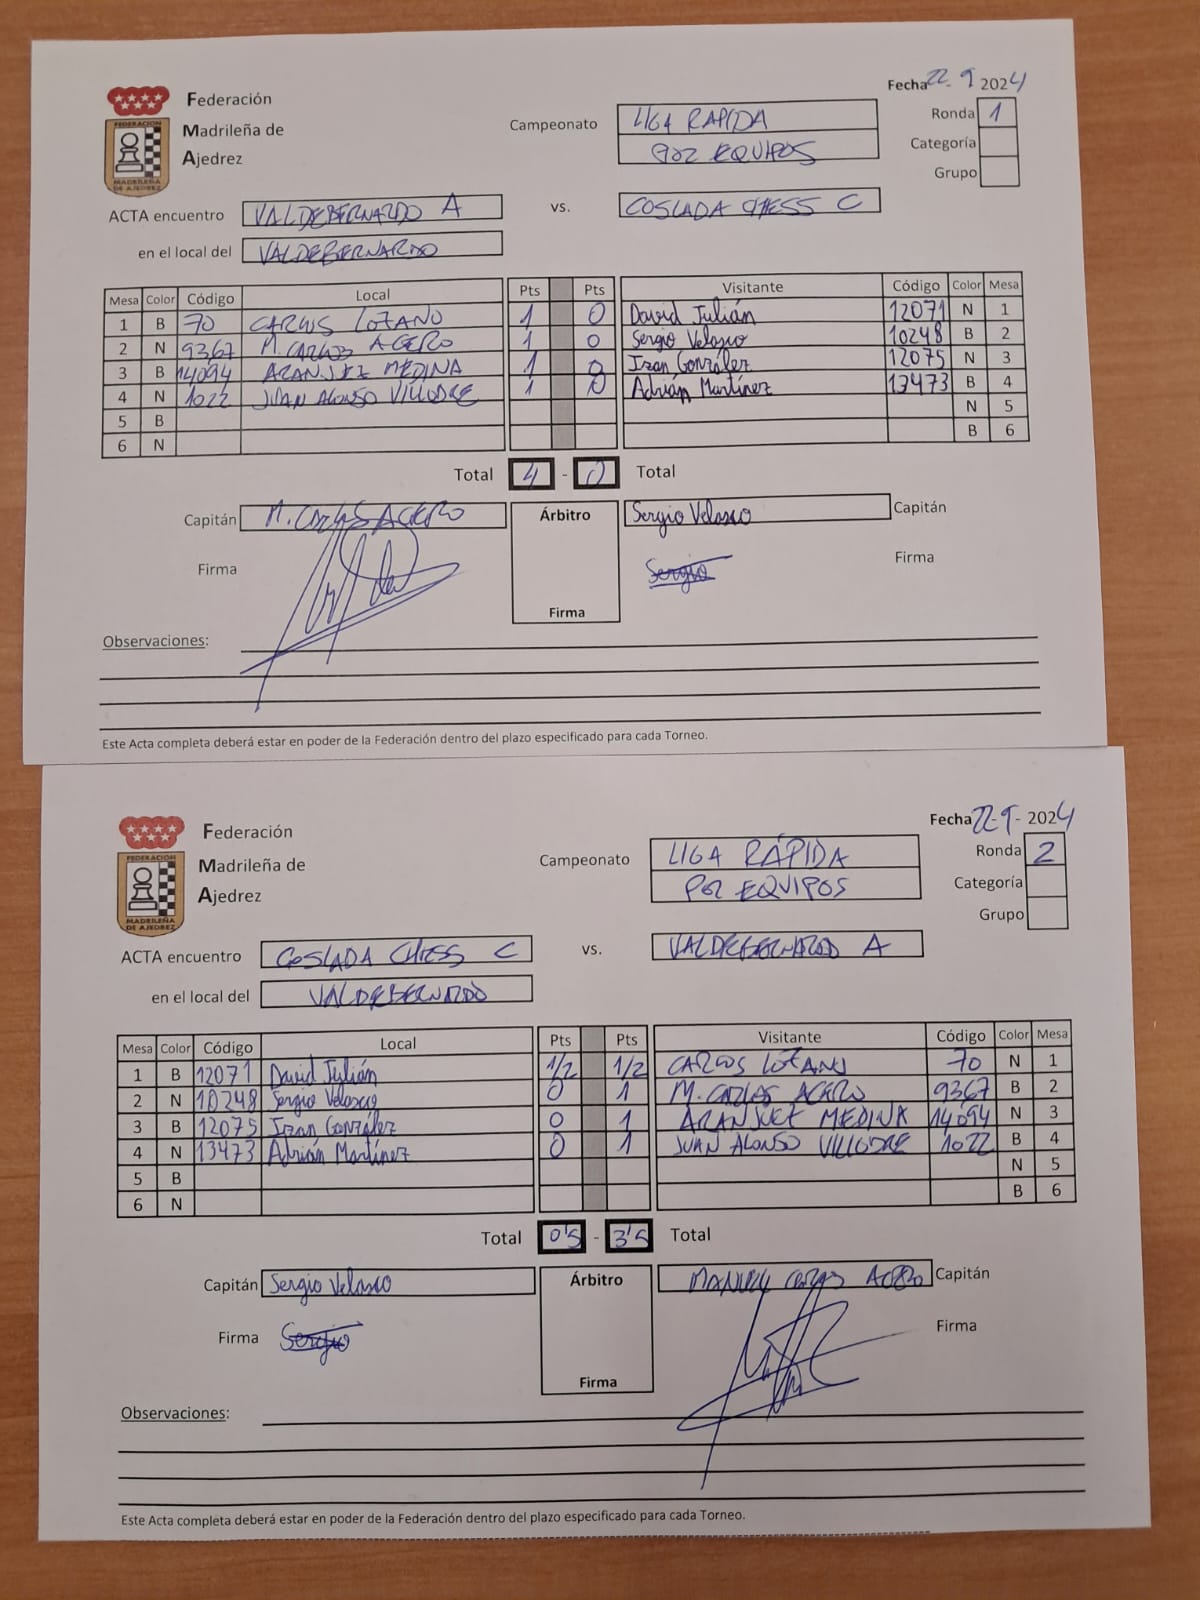 Fecha 22-9 2024
Federación
Madrileña de
Ajedrez
FEDERACION
MADRILEÑA
DE AJEDREZ
Campeonato LIGA RAPIDA
POR EQUIPOS
Ronda 1
Categoría
Grupo
ACTA encuentro VALDEBERNARDO A vs. COSLADA CHESS C
en el local del VALDEBERNARDO
Mesa Color Código Local Pts Pts Visitante Código Color Mesa
1 B 70 CARLOS LOZANO 1 0 David Julián 12071 N 1
2 N 9367 M. CARLOS ACERO 1 0 Sergio Velasco 10248 B 2
3 B 14094 ARANJUEZ MEDINA 1 0 Izan González 12075 N 3
4 N 1022 JUAN ALONSO VILLODRE 1 0 Adrián Martínez 13473 B 4
5 B N 5
6 N B 6
Total 4 - 0 Total
Capitán M. CARLOS ACERO Árbitro Sergio Velasco Capitán
Firma Sergio Firma
Firma
Observaciones:
Este Acta completa deberá estar en poder de la Federación dentro del plazo especificado para cada Torneo.
Fecha 22-9- 2024
Federación
Madrileña de
Ajedrez
FEDERACION
MADRILEÑA
DE AJEDREZ
Campeonato LIGA RÁPIDA
POR EQUIPOS
Ronda 2
Categoría
Grupo
ACTA encuentro COSLADA CHESS C vs. VALDEBERNARDO A
en el local del VALDEBERNARDO
Mesa Color Código Local Pts Pts Visitante Código Color Mesa
1 B 12071 David Julián 1/2 1/2 CARLOS LOZANO 70 N 1
2 N 10248 Sergio Velasco 0 1 M. CARLOS ACERO 9367 B 2
3 B 12075 Izan González 0 1 ARANJUEZ MEDINA 14094 N 3
4 N 13473 Adrián Martínez 0 1 JUAN ALONSO VILLODRE 1022 B 4
5 B N 5
6 N B 6
Total 0'5 - 3'5 Total
Capitán Sergio Velasco Árbitro MANUEL CARLOS ACERO Capitán
Firma Sergio Firma
Firma
Observaciones:
Este Acta completa deberá estar en poder de la Federación dentro del plazo especificado para cada Torneo.